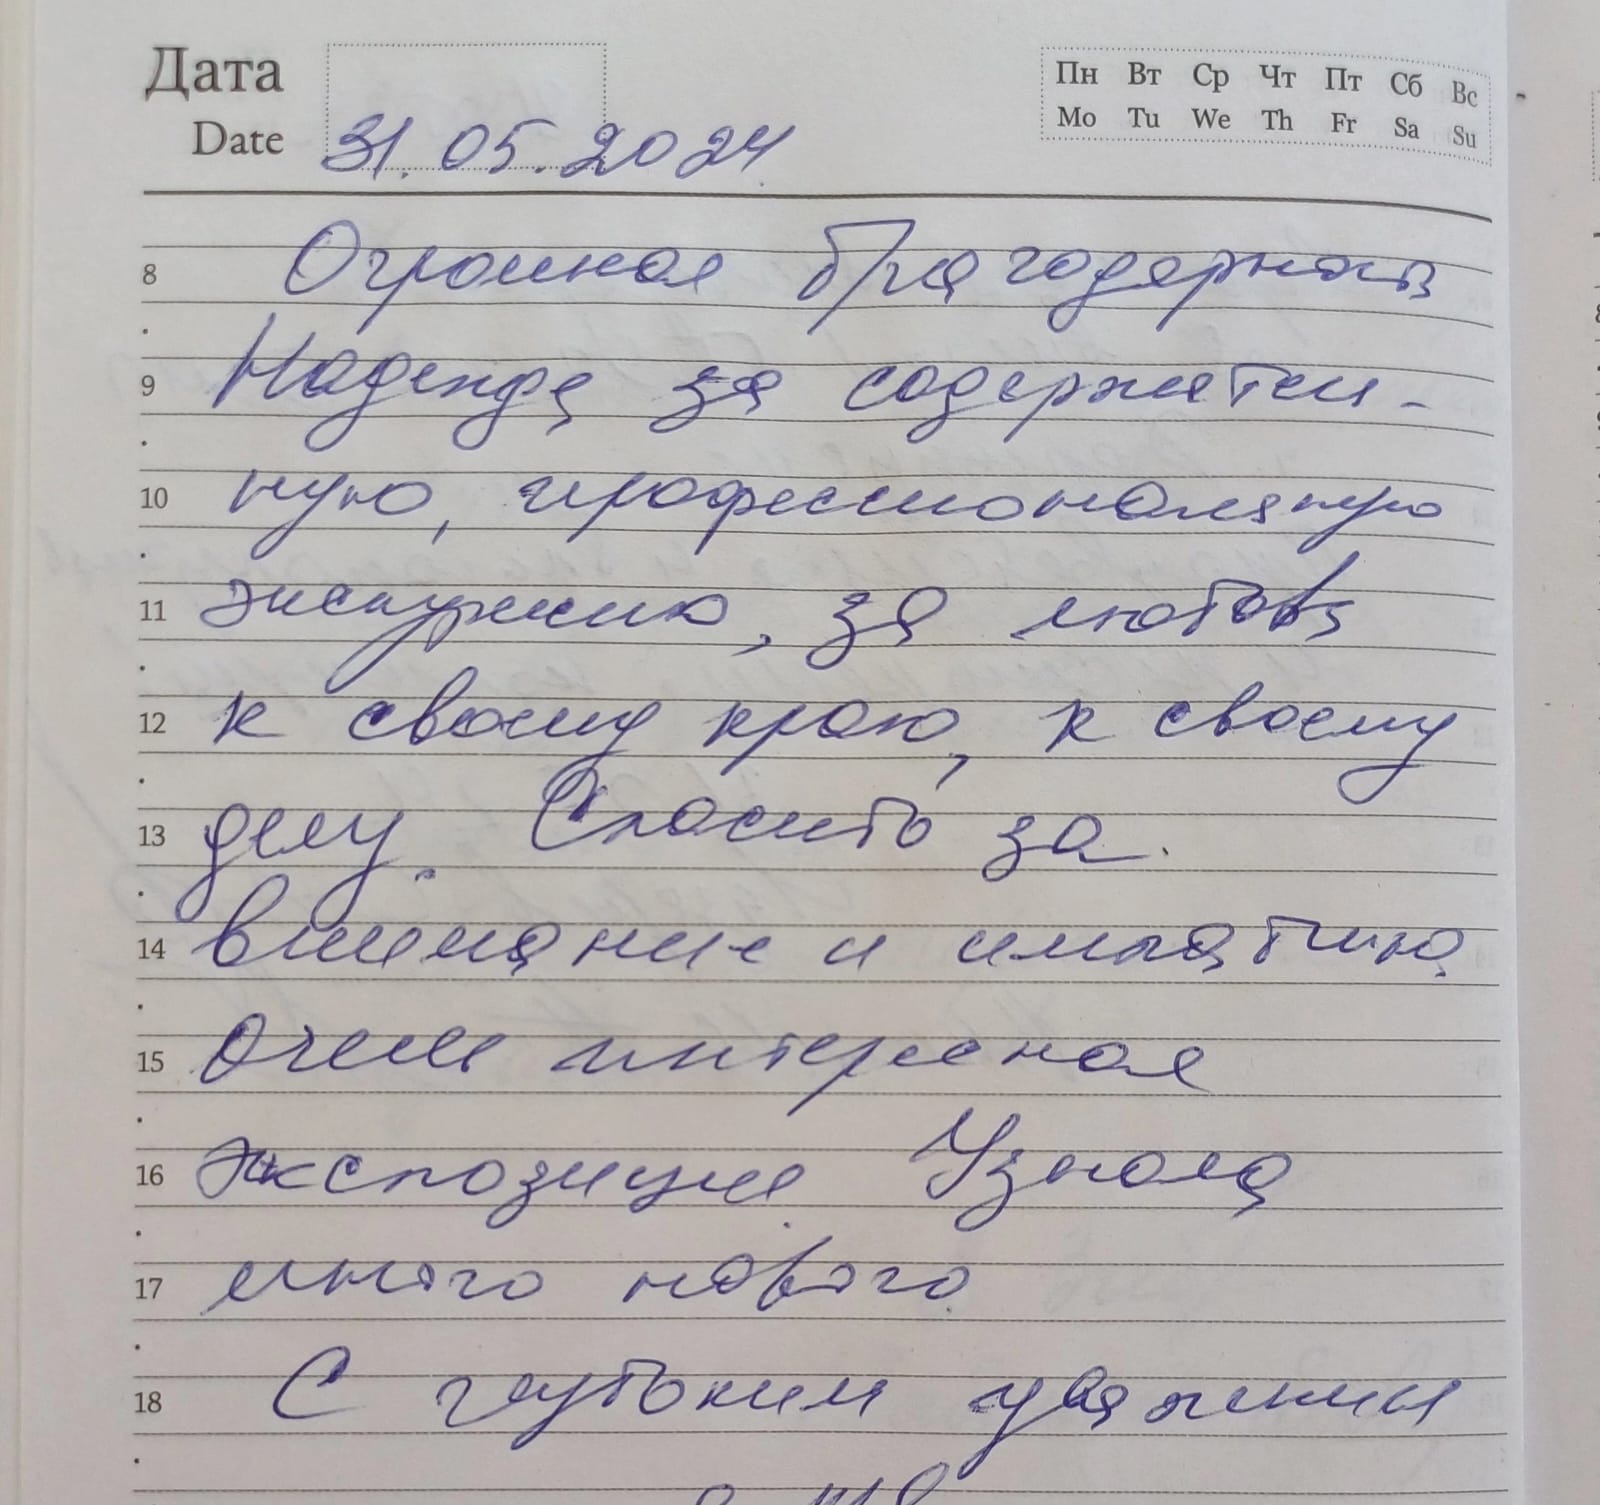 Дата
Date 31.05.2024
Пн Вт Ср Чт Пт Сб Вс
Mo Tu We Th Fr Sa Su
8 Огромная благодарность
9 Надежде за содержатель-
10 ную, профессиональную
11 экскурсию, за любовь
12 к своему краю, к своему
13 делу. Спасибо за
14 внимание и эмпатию.
15 Очень интересная
16 экспозиция. Узнала
17 много нового.
18 С глубоким уважением